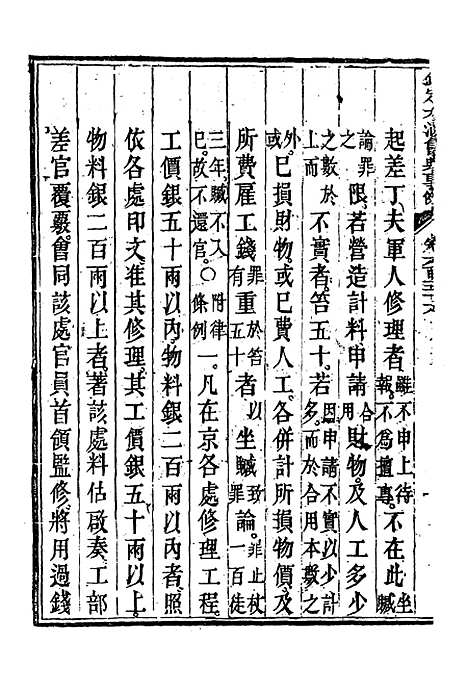 欽定大清會典事例
起差丁夫軍人修理者。雖不申上待報。不為擅專。不在此坐贓
論罪之限。若營造計料申請合用財物。及人工多少
之數於上而不實者。笞五十。若因申請不實以少計多。而於合用本數之
外。已損財物。或已費人工。各併計所損物價。及
所費雇工錢罪有重於笞五十者以坐贓致罪論。罪止杖一百徒
三年。贓不入已。故不還官。〇附律條例一。凡在京各處修理工程。
工價銀五十兩以內。物料銀二百兩以內者。照
依各處印文。准其修理。其工價銀五十兩以上。
物料銀二百兩以上者。著該處料估啟奏。工部
差官覆覈。會同該處官員首領監修。將用過錢